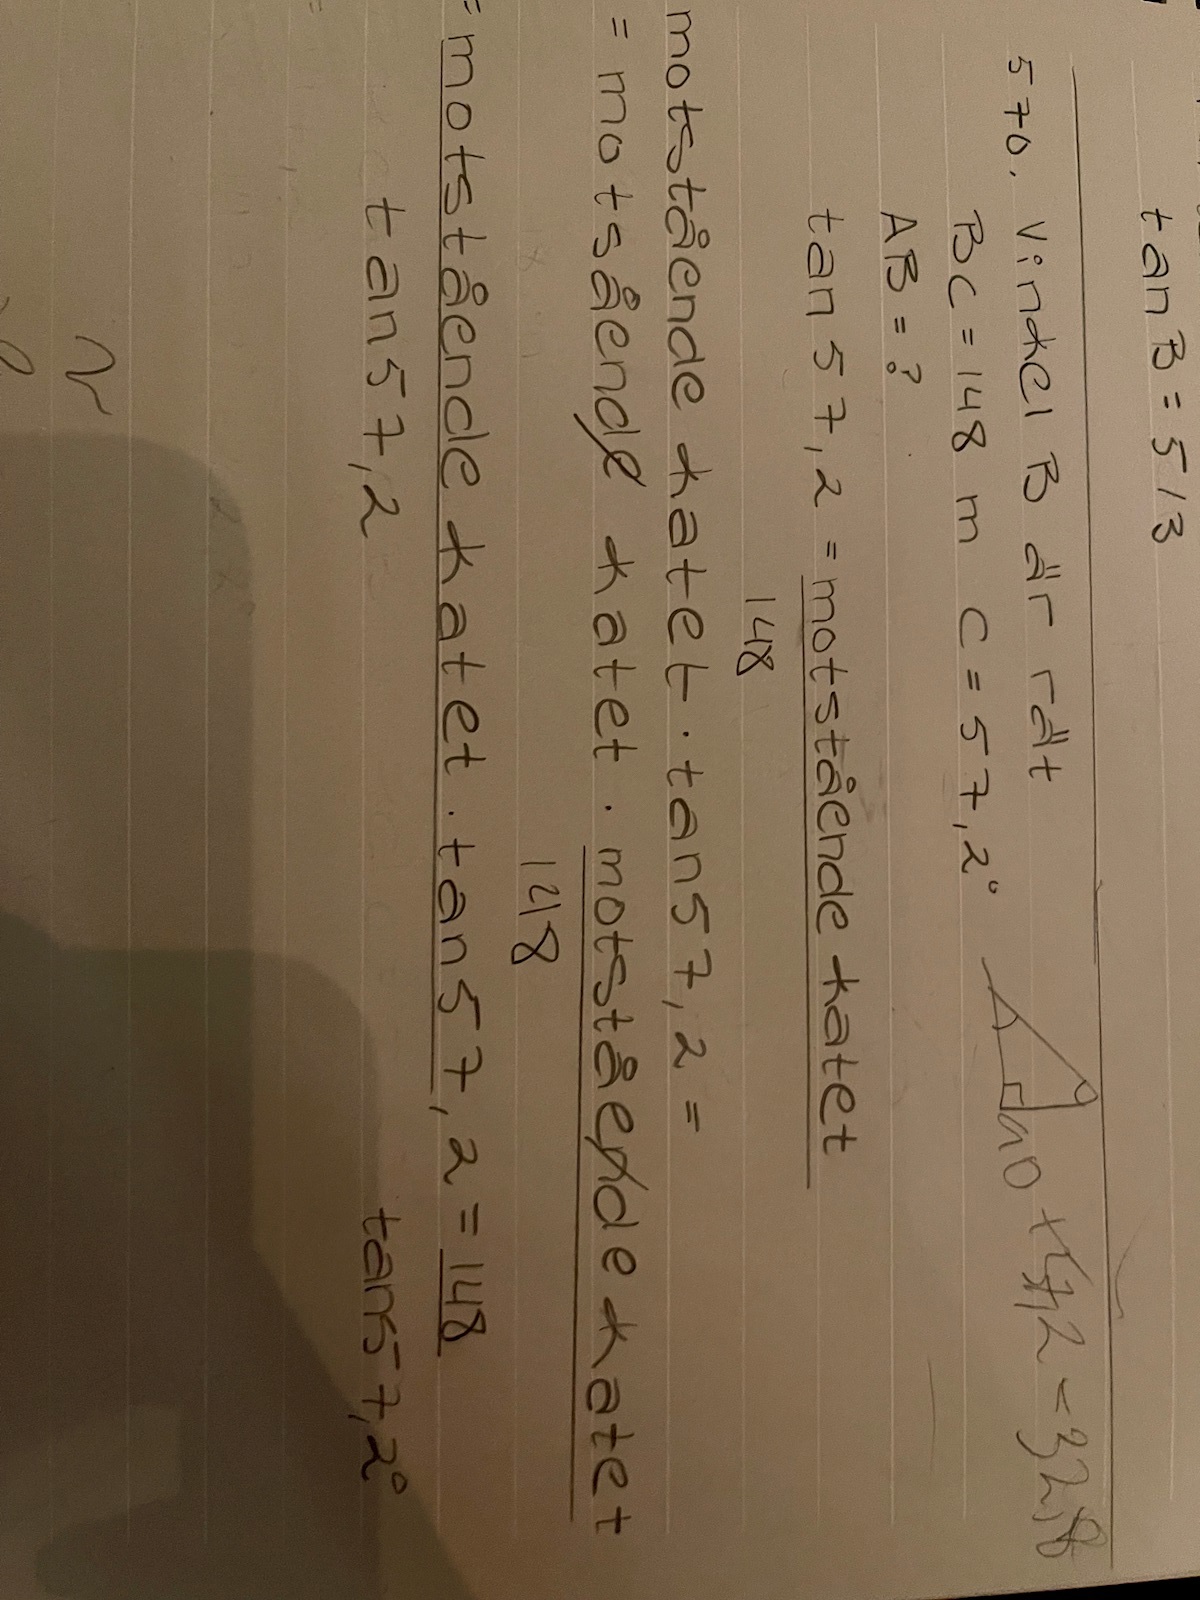 tan B = 5/3
570. Vinkel B är rät
90 + 57,2 = 32,8
BC = 148 m C = 57,2°
AB = ?
tan 57,2 = motstående katet
148
motstående katet · tan 57,2 =
= motsående katet · motstående katet
148
= motstående katet · tan 57,2 = 148
tan 57,2 tan 57,2°